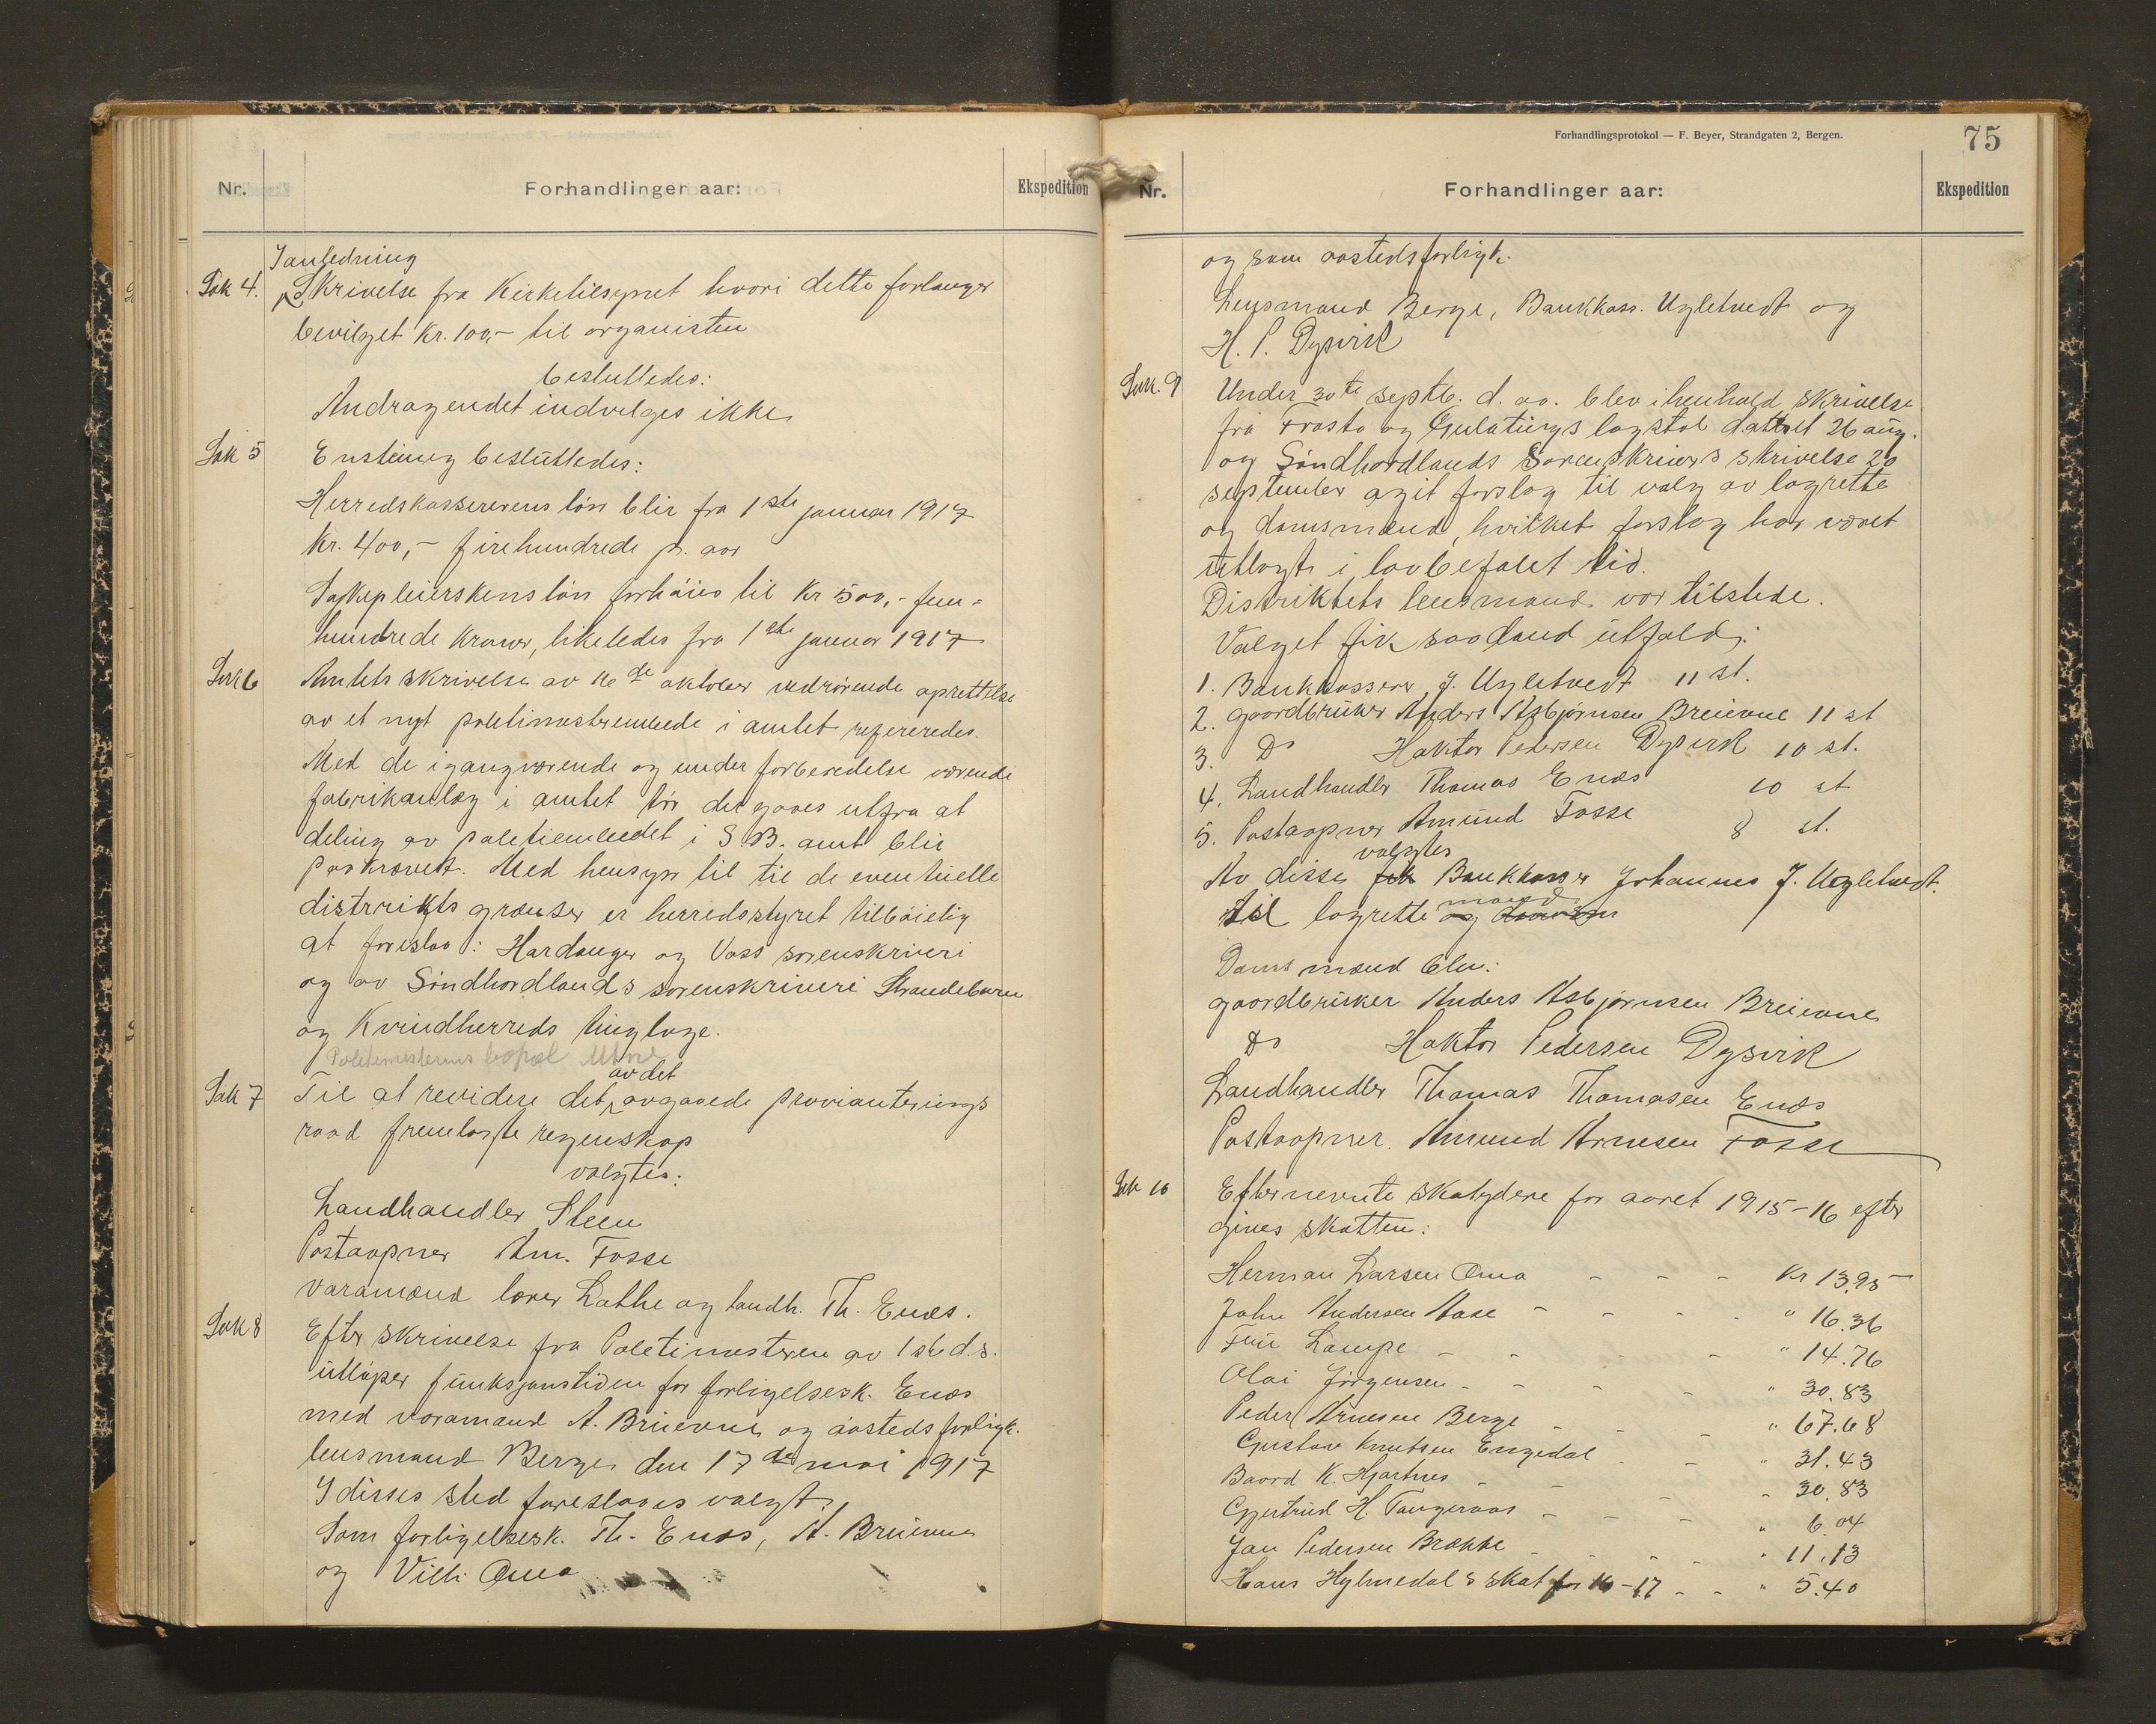 Nr.
Forhandlinger aar:
Ekspedition
I anledning
Sak 4. Skrivelse fra Kirketilsynet hvori dette forlanger
bevilget kr. 100,- til organisten
besluttedes:
Andragendet indvilges ikke
Sak 5 Enstemig besluttedes:
Herredskassererens løn blir fra 1ste januar 1917
kr. 400,- firehundrede p. aar
Sykepleierskens løn forhøies til kr 500,- fem=
hundrede kroner, likeledes fra 1ste januar 1917
Sak 6 Amtets skrivelse av 16de oktober vedrørende oprettelse
av et nyt politimesterembede i amtet refereredes.
Med de igangværende og under forberedelse værende
fabrikanlæg i amtet tør det gaaes ut fra at
deling av politiembedet i S.B. amt blir
paakrævet. Med hensyn til til de eventuelle
distrikts grænser er herredsstyret tilbøielig
at foreslaa: Hardanger og Voss sorenskriveri
og av Søndhordlands sorenskriveri Strandebarm
og Kvindherreds tinglage.
Politimesterens bopæl Utne
av det
Sak 7 Til at revidere det avgaaede provianterings
raad fremlagte regenskap
valgtes:
Landhandler Steen
Postaapner Am. Fosse
Varamænd lærer Lathe og landh. Th. Enæs.
Sak 8 Efter skrivelse fra Politimesteren av 1ste d.s.
utløper funksjonstiden for forligelsesk. Enæs
med varamand A. Breievne og åstedsforligk.
lensmand Berge den 17de mai 1917
I disses sted foreslaaes valgt:
Som forligelsesk. Th. Enæs, A. Breievne
og Villi Oma
Forhandlingsprotokol — F. Beyer, Strandgaten 2, Bergen.
75
Nr.
Forhandlinger aar:
Ekspedition
og som aastedsforligk.
Lensmand Berge, Bankkass. Ugletvedt og
H. P. Dysvik
Sak. 9 Under 30te septb. d. aa. blev i henhold skrivelse
fra Frosta og Gulatings lagstol dateret 26 aug.
og Søndhordlands Sorenskrivers skrivelse 20
september agit forslag til valg av lagrette
og domsmænd, hvilket forslag har været
utlagt i lovbefalet tid.
Distriktets lensmand var tilstede.
Valget fik saadand utfald:
1. Bankkasserer J. Ugletvedt 11 st.
2. gaardbruker Anders Asbjørnsen Breievne 11 st
3. Do Haktor Pedersen Dysvik 10 st.
4. Landhandler Thomas Enæs 10 st
5. Postaapner Amund Fosse 8 st.
valgtes
Av disse fik Bankkasser Johannes J. Ugletvedt.
mænd
til lagrette og domsm
Domsmænd blev:
gaardbruker Anders Asbjørnsen Breievne
Do Haktor Pedersen Dysvik
Landhandler Thomas Thomasen Enæs
Postaapner. Amund Arnesen Fosse
Sak 10 Efternevnte skatydere for aaret 1915-16 efter
gives skatten:
Herman Larsen Oma - - - Kr 13,95
John Andersen Aase - - - " 16.36
Fru Lampe - - - - " 14.76
Olai Jörgensen - - - - " 30.83
Peder Arnesen Berge - - - " 67.68
Gustav Knutsen Engedal - - " 31.43
Baard K. Hjartnes - - - - 30.83
Gjertrud H. Tangeraas - - - " 6.04
Jan Pedersen Brække - - - - " 11.13
Hans Hylmedals skat for 16-17 - - " 5.40